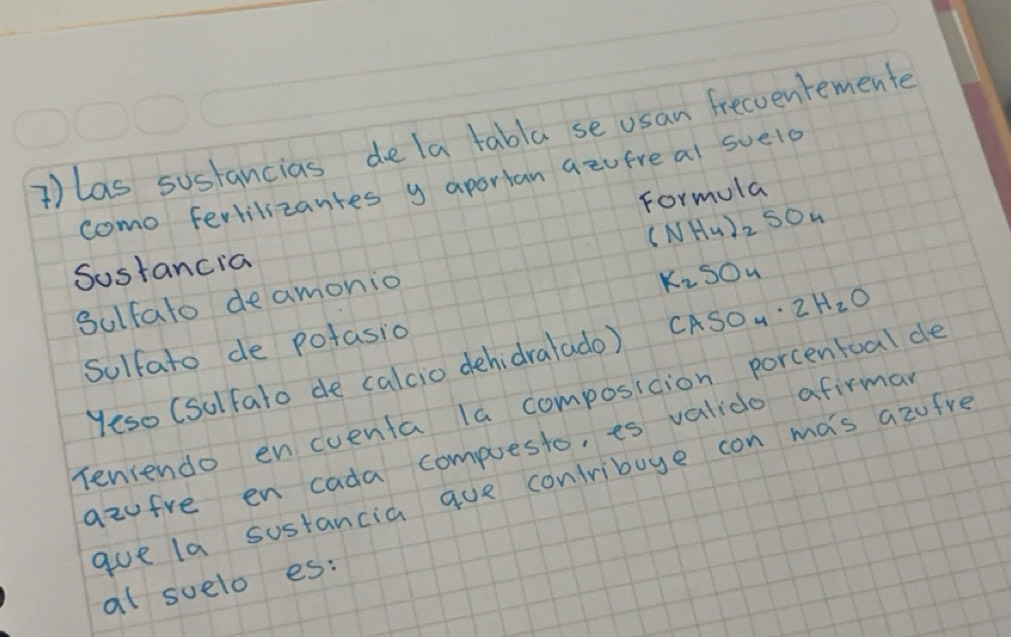 7) Las sustancias de la tabla se usan frecuentemente
como fertilizantes y aportan azufre al suelo
Sustancia Formula
Sulfato de amonio (NH4)2 SO4
Sulfato de potasio K2SO4
Yeso (Sulfato de calcio dehidratado) CASO4 · 2H2O
Teniendo en cuenta la composicion porcentual de
azufre en cada compuesto, es valido afirmar
que la sustancia que contribuye con más azufre
al suelo es: